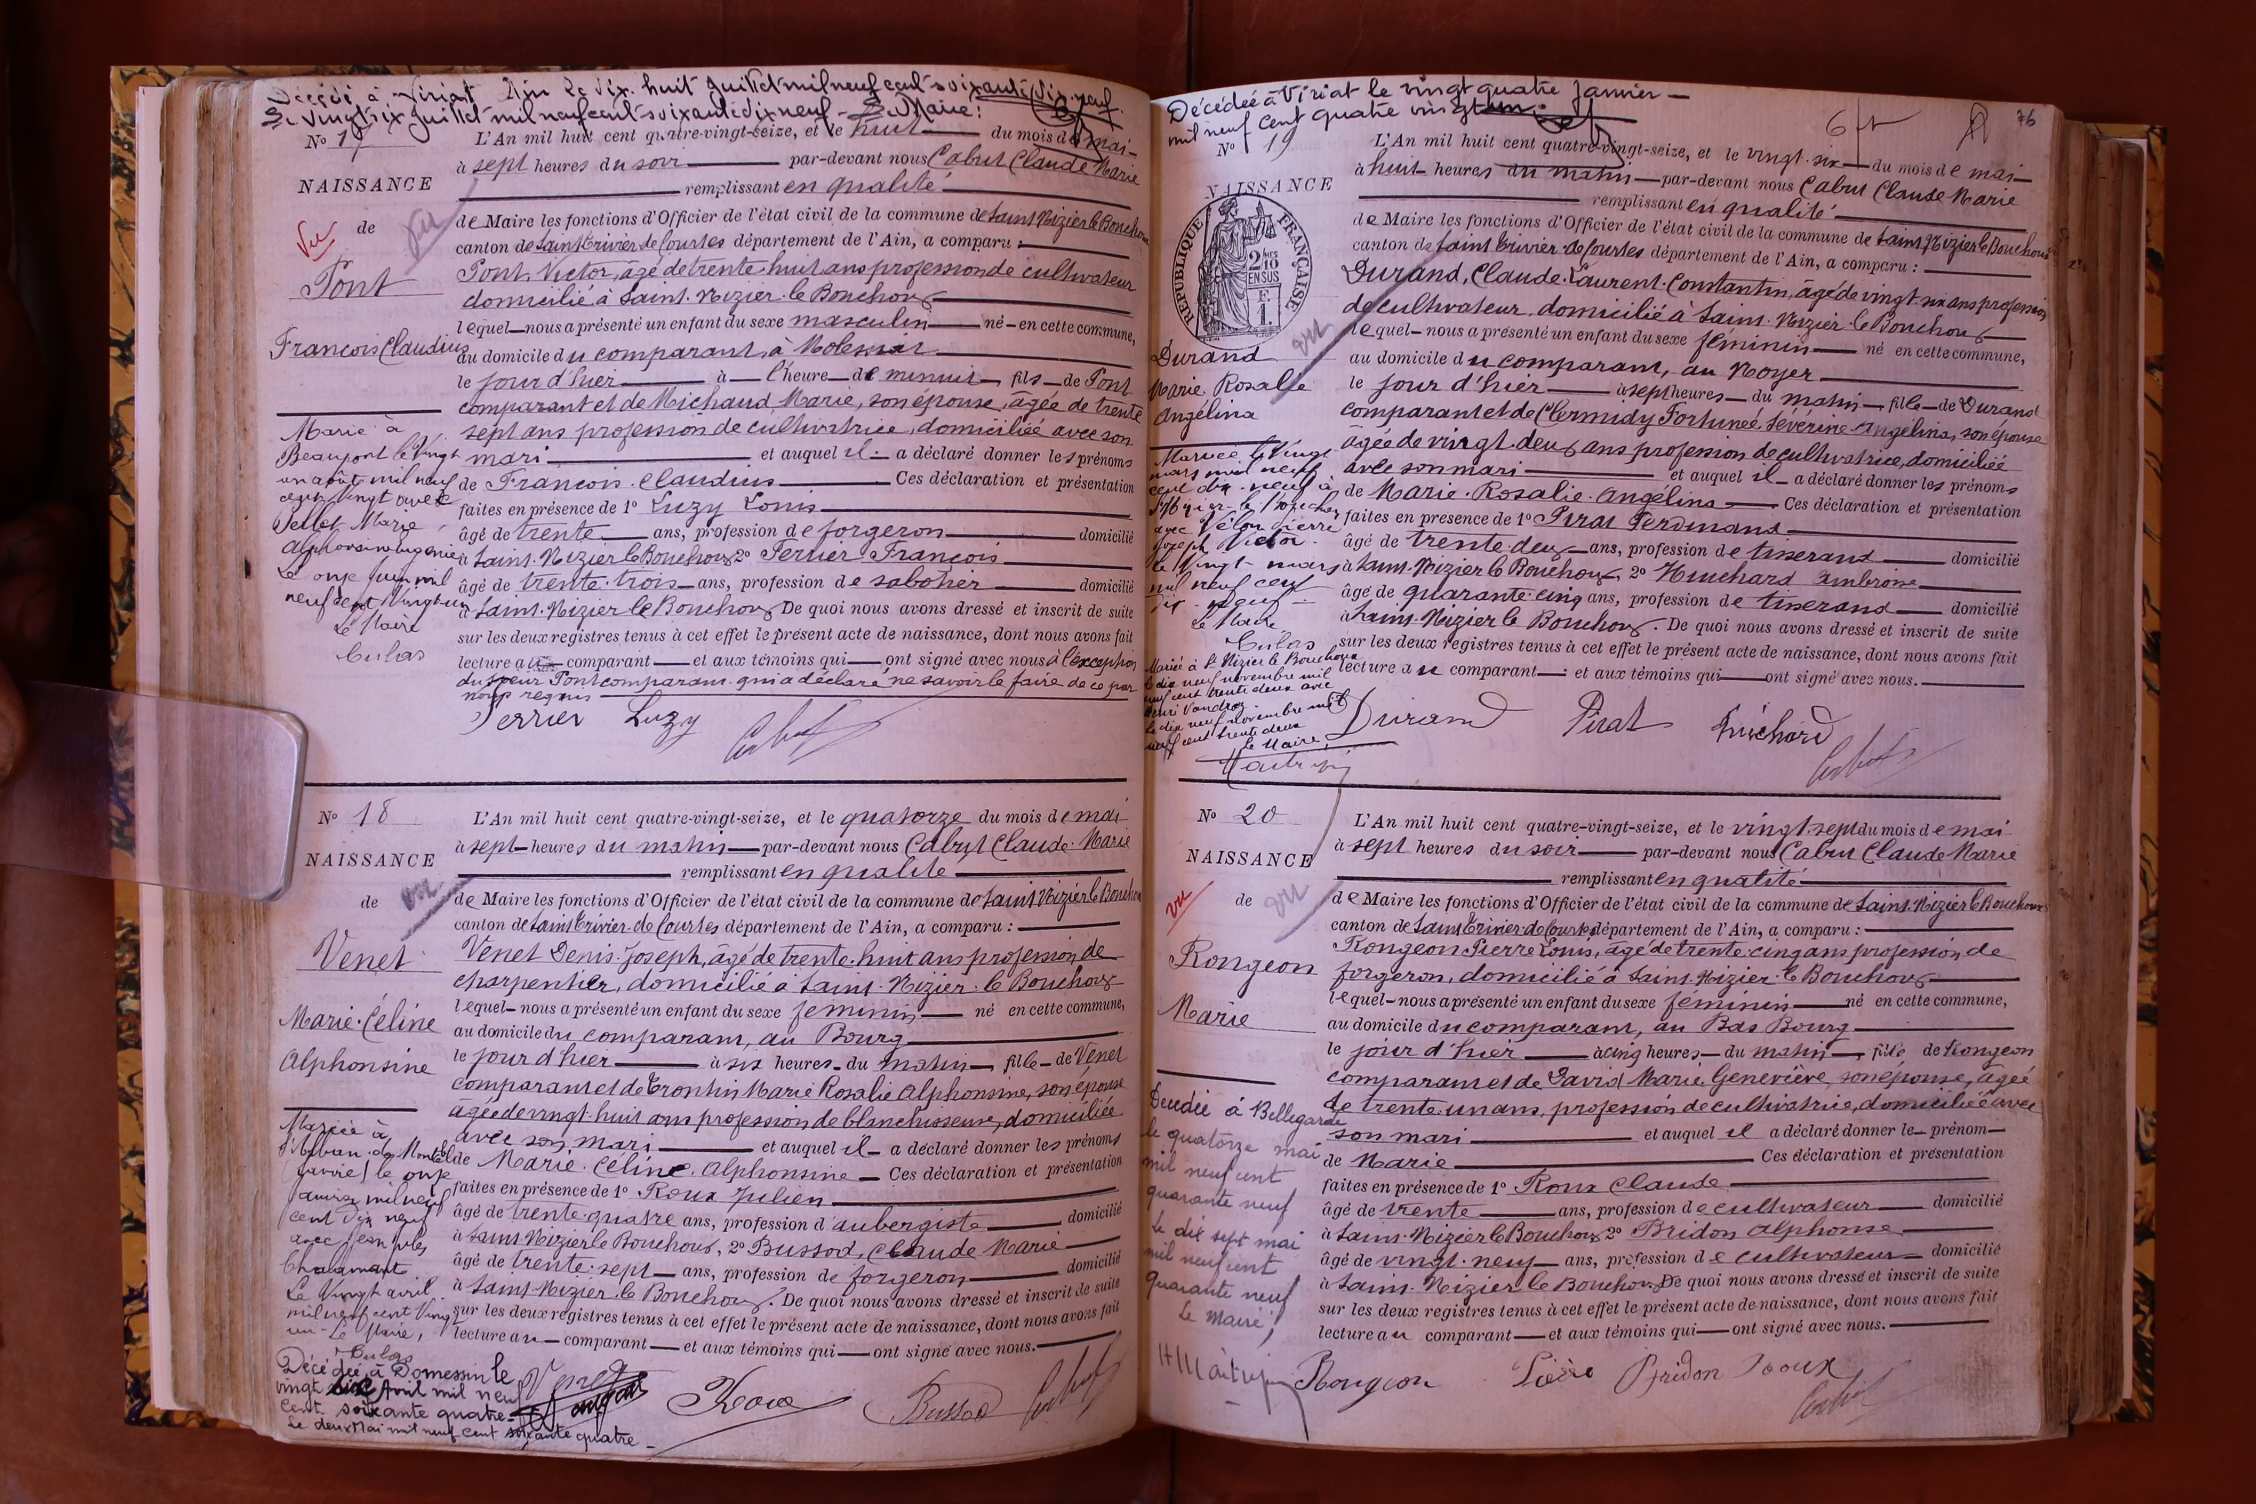 Décédé à Viriat Ain le dix huit juillet mil neuf cent soixante dix neuf.
Le vingt six juillet mil neuf cent soixante dix neuf - Le Maire :
No 17
NAISSANCE
de
Vu
vu
Pont
François Claudius
Marié à
Beaupont le vingt
un août mil neuf
cent vingt avec
Pellet Marie
Alphonsine Eugénie
Le onze juin mil
neuf cent vingt un
Le Maire
Culas
L'An mil huit cent quatre-vingt-seize, et le huit du mois de mai
à sept heures du soir par-devant nous Cabut Claude Marie
remplissant en qualité
de Maire les fonctions d'Officier de l'état civil de la commune de Saint Nizier le Bouchoux
canton de Saint Trivier de Courtes département de l'Ain, a comparu :
Pont, Victor, âgé de trente huit ans profession de cultivateur
domicilié à Saint Nizier le Bouchoux
lequel nous a présenté un enfant du sexe masculin né en cette commune,
au domicile du comparant, à
le jour d'hier à l'heure de minuit, fils de Pont
comparant et de Michaud Marie, son épouse, âgée de trente
sept ans profession de cultivatrice, domiciliée avec son
mari et auquel il a déclaré donner les prénoms
de François Claudius Ces déclaration et présentation
faites en présence de 1° Luzy Louis
âgé de trente ans, profession de forgeron domicilié
à Saint Nizier le Bouchoux 2° Terrier François
âgé de trente trois ans, profession de sabotier domicilié
à Saint Nizier le Bouchoux De quoi nous avons dressé et inscrit de suite
sur les deux registres tenus à cet effet le présent acte de naissance, dont nous avons fait
lecture au comparant et aux témoins qui ont signé avec nous à l'exception
du sieur Pont comparant qui a déclaré ne savoir le faire de ce par
nous requis
Terrier Luzy Cabut
No 18
NAISSANCE
de
vu
Venet
Marie Céline
Alphonsine
Mariée à
St Alban de Montbel
(Savoie) le onze
janvier mil neuf
cent dix neuf
avec Jean Jules
Le vingt avril
mil neuf cent vingt
un - Le Maire,
Culas
Décédée à Domessin le
vingt six Avril mil neuf
cent soixante quatre -
Le deux Mai mil neuf cent soixante quatre -
L'An mil huit cent quatre-vingt-seize, et le quatorze du mois de mai
à sept heures du matin par-devant nous Cabut Claude Marie
remplissant en qualité
de Maire les fonctions d'Officier de l'état civil de la commune de Saint Nizier le Bouchoux
canton de Saint Trivier de Courtes département de l'Ain, a comparu :
Venet Denis Joseph, âgé de trente huit ans profession de
charpentier, domicilié à Saint Nizier le Bouchoux
lequel nous a présenté un enfant du sexe féminin né en cette commune,
au domicile du comparant, au Bourg
le jour d'hier à six heures du matin, fille de Venet
comparant et de Tronchin Marie Rosalie Alphonsine, son épouse
âgée de vingt huit ans profession de blanchisseuse, domiciliée
avec son mari et auquel il a déclaré donner les prénoms
de Marie Céline Alphonsine Ces déclaration et présentation
faites en présence de 1° Roux Julien
âgé de trente quatre ans, profession d'aubergiste domicilié
à Saint Nizier le Bouchoux, 2° Bussod, Claude Marie
âgé de trente sept ans, profession de forgeron domicilié
à Saint Nizier le Bouchoux. De quoi nous avons dressé et inscrit de suite
sur les deux registres tenus à cet effet le présent acte de naissance, dont nous avons fait
lecture au comparant et aux témoins qui ont signé avec nous.
Venet Roux Bussod Cabut
76
Décédée à Viriat le vingt quatre Janvier
mil neuf cent quatre vingt un.
No 19
NAISSANCE
RÉPUBLIQUE FRANÇAISE
2 10 EN SUS
E. 1.
vu
Durand
Marie Rosalie
Angélina
Mariée le vingt
mars mil neuf
cent dix neuf à
St Nizier le Bouchoux
avec Vélon Pierre
Joseph Victor
Le vingt mars
mil neuf cent
dix neuf
Le Maire
Culas
Mariée à St Nizier le Bouchoux
le dix neuf novembre mil
neuf cent trente deux avec
Henri Vandroz
Le dix neuf novembre mil
neuf cent trente deux
Le Maire,
L'An mil huit cent quatre-vingt-seize, et le vingt six du mois de mai
à huit heures du matin par-devant nous Cabut Claude Marie
remplissant en qualité
de Maire les fonctions d'Officier de l'état civil de la commune de Saint Nizier le Bouchoux
canton de Saint Trivier de Courtes département de l'Ain, a comparu :
Durand, Claude Laurent Constantin, âgé de vingt six ans profession
de cultivateur, domicilié à Saint Nizier le Bouchoux
lequel nous a présenté un enfant du sexe féminin né en cette commune,
au domicile du comparant, au Noyer
le jour d'hier à sept heures du matin, fille de Durand
comparant et de Clermidy Fortunée Séverine Angélina, son épouse
âgée de vingt deux ans profession de cultivatrice, domiciliée
avec son mari et auquel il a déclaré donner les prénoms
de Marie Rosalie Angélina Ces déclaration et présentation
faites en présence de 1° Pirat Ferdinand
âgé de trente deux ans, profession de tisserand domicilié
à Saint Nizier le Bouchoux, 2° Huichard Ambroise
âgé de quarante cinq ans, profession de tisserand domicilié
à Saint Nizier le Bouchoux. De quoi nous avons dressé et inscrit de suite
sur les deux registres tenus à cet effet le présent acte de naissance, dont nous avons fait
lecture au comparant et aux témoins qui ont signé avec nous.
Durand Pirat Huichard Cabut
No 20
NAISSANCE
de
vu
vu
Rongeon
Marie
Décédée à Bellegarde
le quatorze mai
mil neuf cent
quarante neuf
Le dix sept mai
mil neuf cent
quarante neuf
Le Maire,
L'An mil huit cent quatre-vingt-seize, et le vingt sept du mois de mai
à sept heures du soir par-devant nous Cabut Claude Marie
remplissant en qualité
de Maire les fonctions d'Officier de l'état civil de la commune de Saint Nizier le Bouchoux
canton de Saint Trivier de Courtes département de l'Ain, a comparu :
Rongeon Pierre Louis, âgé de trente cinq ans profession de
forgeron, domicilié à Saint Nizier le Bouchoux
lequel nous a présenté un enfant du sexe féminin né en cette commune,
au domicile du comparant, au Bas Bourg
le jour d'hier à cinq heures du matin, fille de Rongeon
comparant et de David Marie Geneviève, son épouse, âgée
de trente un ans, profession de cultivatrice, domiciliée avec
son mari et auquel il a déclaré donner le prénom
de Marie Ces déclaration et présentation
faites en présence de 1° Roux Claude
âgé de trente ans, profession de cultivateur domicilié
à Saint Nizier le Bouchoux 2° Bridon Alphonse
âgé de vingt neuf ans, profession de cultivateur domicilié
à Saint Nizier le Bouchoux De quoi nous avons dressé et inscrit de suite
sur les deux registres tenus à cet effet le présent acte de naissance, dont nous avons fait
lecture au comparant et aux témoins qui ont signé avec nous.
Rongeon Bridon Roux Cabut